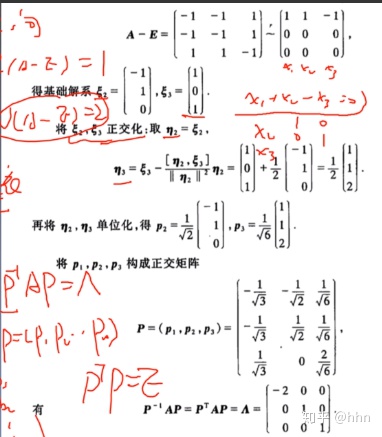 A - E = [-1 -1 1; -1 -1 1; 1 1 -1] ~ [1 1 -1; 0 0 0; 0 0 0],
x₁ x₂ x₃
(A-E)=1
得基础解系 ξ₂ = [-1; 1; 0], ξ₃ = [1; 0; 1].
x₁+x₂-x₃=0
(A-E)=2
x₂ 1 0
x₃ 0 1
将 ξ₂, ξ₃ 正交化:取 η₂ = ξ₂,
η₃ = ξ₃ - [η₂, ξ₃]/‖η₂‖² η₂ = [1; 0; 1] + 1/2 [-1; 1; 0] = 1/2 [1; 1; 2].
再将 η₂, η₃ 单位化,得 p₂ = 1/√2 [-1; 1; 0], p₃ = 1/√6 [1; 1; 2].
将 p₁, p₂, p₃ 构成正交矩阵
P⁻¹AP=Λ
P = (p₁, p₂, p₃) = [-1/√3 -1/√2 1/√6; -1/√3 1/√2 1/√6; 1/√3 0 2/√6],
P=(P₁ P₂ ... Pₙ)
PᵀP=E
有 P⁻¹AP = PᵀAP = Λ = [-2 0 0; 0 1 0; 0 0 1]
知乎 @hhn